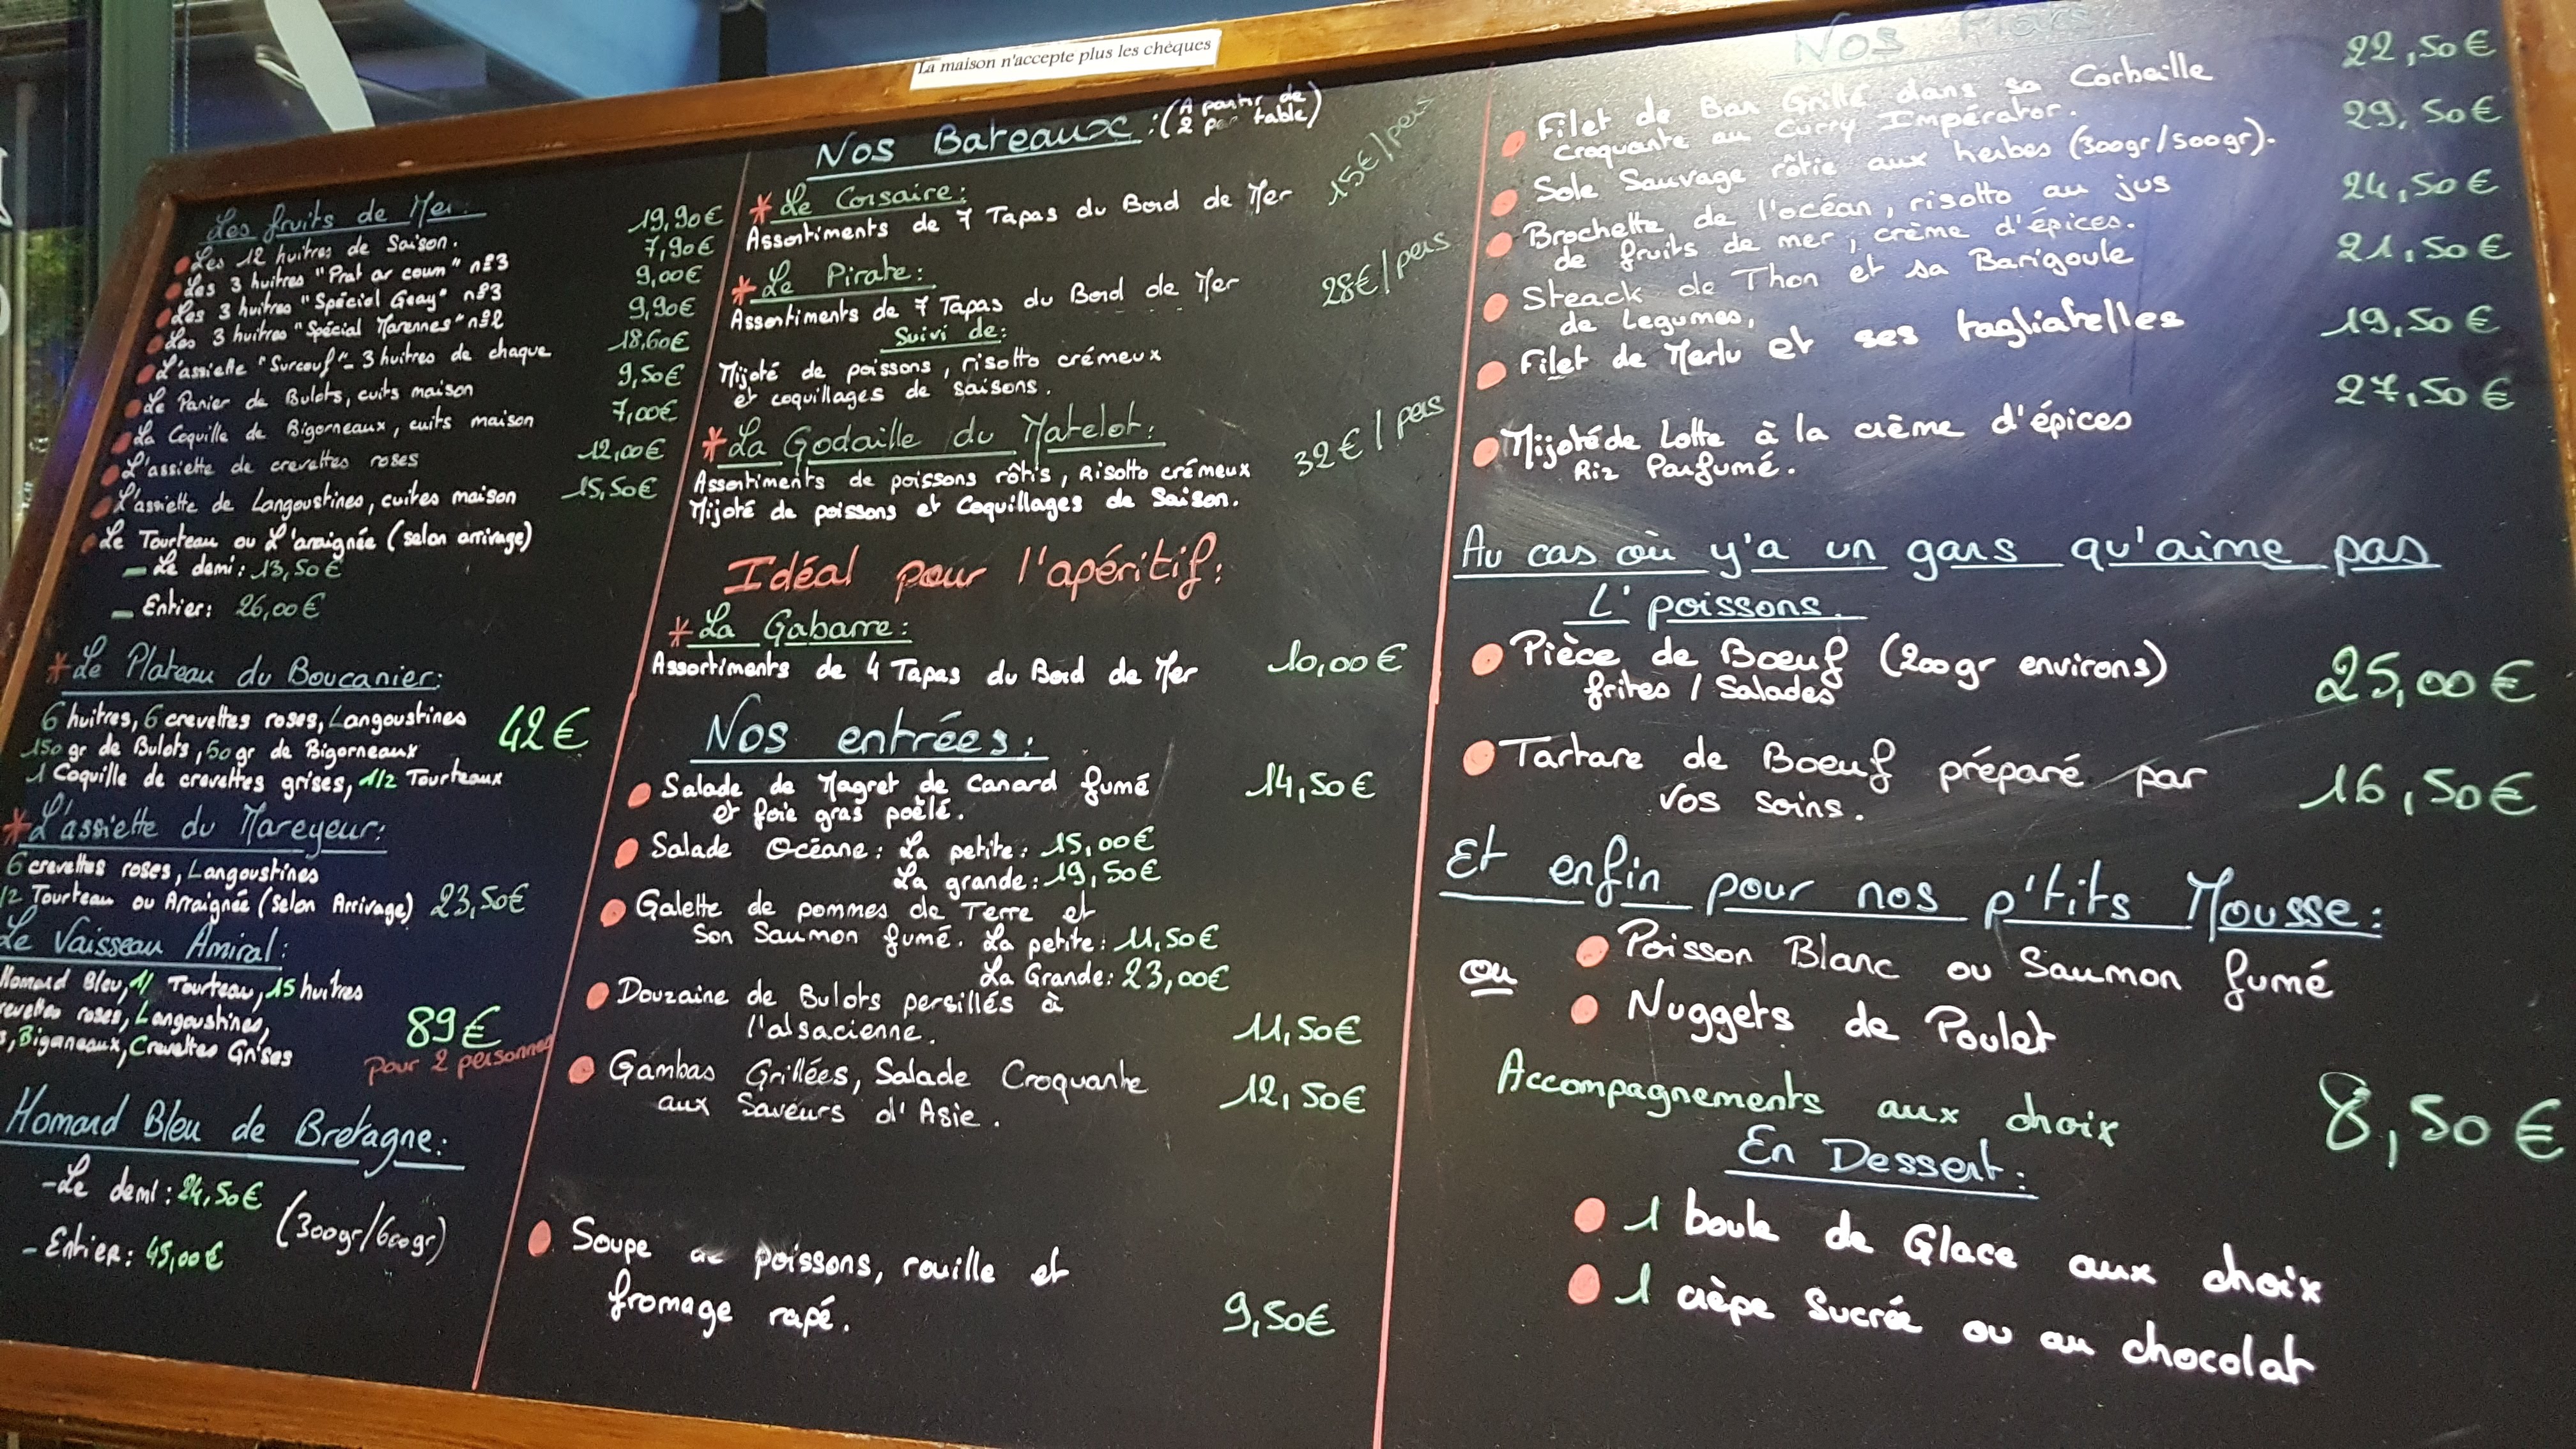 La maison n'accepte plus les chèques
Les fruits de Mer:
Les 12 huitres de Saison. 19,90€
Les 3 huitres "Prat ar coum" n°3 7,90€
Les 3 huitres "Spécial Geay" n°3 9,00€
Les 3 huitres "Spécial Marennes" n°2 9,90€
L'assiette "Surcouf" - 3 huitres de chaque 18,60€
Le Panier de Bulots, cuits maison 9,50€
La Coquille de Bigorneaux, cuits maison 7,00€
L'assiette de crevettes roses 12,00€
L'assiette de Langoustines, cuites maison 15,50€
Le Tourteau ou L'araignée (selon arrivage)
- Le demi: 13,50€
- Entier: 26,00€
* Le Plateau du Boucanier:
6 huitres, 6 crevettes roses, Langoustines
150 gr de Bulots, 50 gr de Bigorneaux 42€
1 Coquille de crevettes grises, 1/2 Tourteaux
* L'assiette du Mareyeur:
6 crevettes roses, Langoustines
/2 Tourteau ou Arraignée (Selon Arrivage) 23,50€
Le Vaisseau Amiral:
Homard Bleu, 1/ Tourteau, 15 huitres
revettes roses, Langoustines, 89€
s, Bigorneaux, Crevettes Grises
Pour 2 personnes
Homard Bleu de Bretagne:
- Le demi: 24,50€
(300gr/600gr)
- Entier: 45,00€
Nos Bateaux: (A partir de
2 par table)
* Le Corsaire: 15€/pers
Assortiments de 7 Tapas du Bord de Mer
* Le Pirate: 28€/pers
Assortiments de 7 Tapas du Bord de Mer
Suivi de:
Mijoté de poissons, risotto crémeux
et coquillages de saisons.
* La Godaille du Matelot: 32€/pers
Assortiments de poissons rôtis, Risotto crémeux
Mijoté de poissons et Coquillages de Saison.
Idéal pour l'apéritif:
* La Gabarre:
Assortiments de 4 Tapas du Bord de Mer 10,00€
Nos entrées:
Salade de Magret de Canard fumé 14,50€
et foie gras poêlé.
Salade Océane: La petite: 15,00€
La grande: 19,50€
Galette de pommes de Terre et
Son Saumon fumé. La petite: 11,50€
La Grande: 23,00€
Douzaine de Bulots persillés à
l'alsacienne. 11,50€
Gambas Grillées, Salade Croquante 12,50€
aux Saveurs d'Asie.
Soupe de poissons, rouille et
fromage rapé. 9,50€
Nos Plats
Filet de Bar Grillé dans sa Corbeille 22,50€
Croquante au Curry Impérator.
Sole Sauvage rôtie aux herbes (300gr/500gr). 29,50€
Brochette de l'océan, risotto au jus 24,50€
de fruits de mer, crème d'épices.
Steack de Thon et sa Barigoule 21,50€
de Legumes,
Filet de Merlu et ses tagliatelles 19,50€
Mijoté de Lotte à la crème d'épices 27,50€
Riz Parfumé.
Au cas où y'a un gars qu'aime pas
L'poissons.
Pièce de Boeuf (200gr environs) 25,00€
frites / Salades
Tartare de Boeuf préparé par 16,50€
vos soins.
Et enfin pour nos p'tits Mousse:
Poisson Blanc ou Saumon fumé
ou
Nuggets de Poulet
Accompagnements aux choix 8,50€
En Dessert:
1 boule de Glace aux choix
1 crèpe Sucrée ou au chocolat